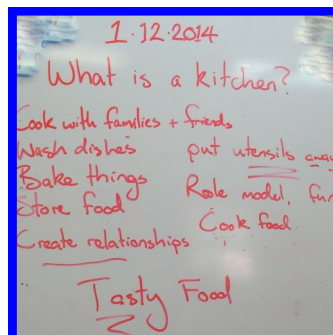 1.12.2014
What is a kitchen?
Cook with families + friends
Wash dishes
Bake things
Store food
Create relationships
put utensils away
Role model, fun
Cook food
Tasty Food